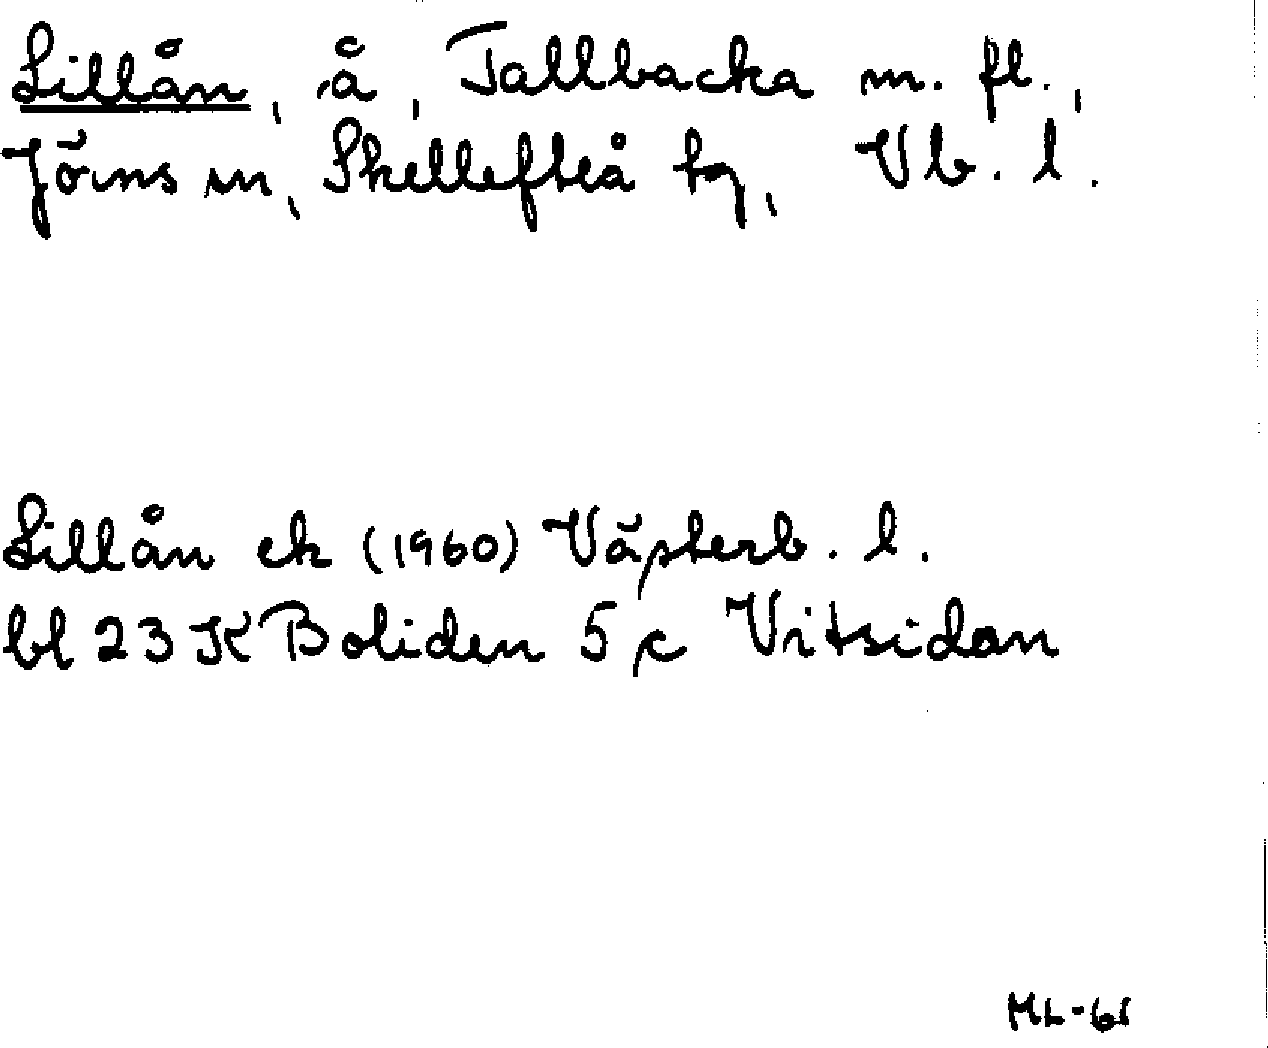 Lillån, å, Tallbacka m. fl.,
Jörns sn, Skellefteå tg, Vb. l.
Lillån ek (1960) Västerb. l.
bl 23 K Boliden 5 c Vitsidan
ML-61